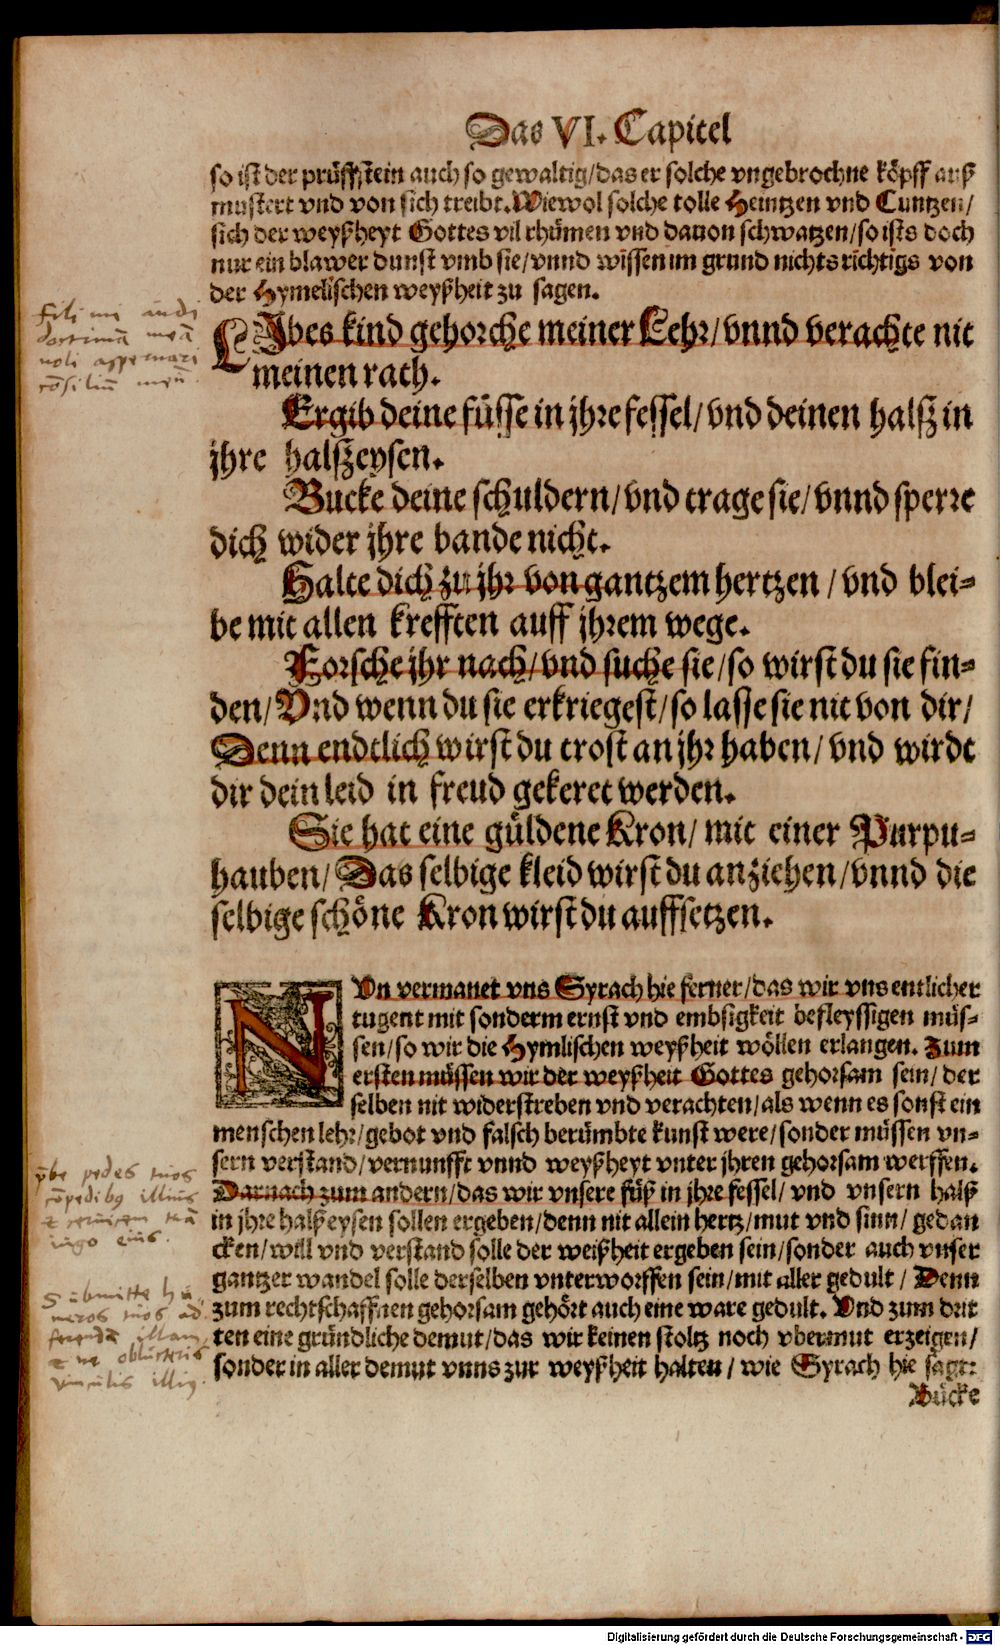 Das VI. Capitel
so ist der prüffstein auch so gewaltig/das er solche vngebrochne köpff auß
mustert vnd von sich treibt. Wiewol solche tolle Heintzen vnd Cuntzen/
sich der weyßheyt Gottes vil rhümen vnd dauon schwatzen/so ists doch
nur ein blawer dunst vmb sie/vnnd wissen im grund nichts richtigs von
der Hymelischen weyßheit zu sagen.
LIbes kind gehorche meiner Lehr/vnnd verachte nit
meinen rath.
Ergib deine füsse in jhre fessel/vnd deinen halsz in
jhre halszeysen.
Bucke deine schuldern/vnd trage sie/vnnd sperre
dich wider jhre bande nicht.
Halte dich zu jhr von gantzem hertzen/vnd blei-
be mit allen krefften auff jhrem wege.
Forsche jhr nach/vnd suche sie/so wirst du sie fin-
den/Vnd wenn du sie erkriegest/so lasse sie nit von dir/
Denn endtlich wirst du trost an jhr haben/vnd wirdt
dir dein leid in freud gekeret werden.
Sie hat eine güldene Kron/mit einer Purpu-
hauben/Das selbige kleid wirst du anziehen/vnnd die
selbige schöne Kron wirst du auffsetzen.
NVn vermanet vns Syrach hie ferner/das wir vns entlicher
tugent mit sonderm ernst vnd embsigkeit befleyssigen müs-
sen/so wir die Hymlischen weyßheit wöllen erlangen. Zum
ersten müssen wir der weyßheit Gottes gehorsam sein/der
selben nit widerstreben vnd verachten/als wenn es sonst ein
menschen lehr/gebot vnd falsch berümbte kunst were/sonder müssen vn-
sern verstand/vernunfft vnnd weyßheyt vnter jhren gehorsam werffen.
Darnach zum andern/das wir vnsere füß in jhre fessel/vnd vnsern halß
in jhre halßeysen sollen ergeben/denn nit allein hertz/mut vnd sinn/gedan
cken/will vnd verstand solle der weißheit ergeben sein/sonder auch vnser
gantzer wandel solle derselben vnterworffen sein/mit aller gedult/Denn
zum rechtschaffnen gehorsam gehört auch eine ware gedult. Vnd zum drit
ten eine gründliche demut/das wir keinen stoltz noch vbermut erzeigen/
sonder in aller demut vnns zur weyßheit halten/wie Syrach hie sagt:
Bücke
Fili mi audi
doctrinā meā
noli aspernari
cōsiliū meū.
pedes tuos
cōpedibꝰ illius
eius.
Submitte hu
meros tuos ad
ferendā illam
& ne oblucteris
vinculis illiꝰ.
Digitalisierung gefördert durch die Deutsche Forschungsgemeinschaft - DFG